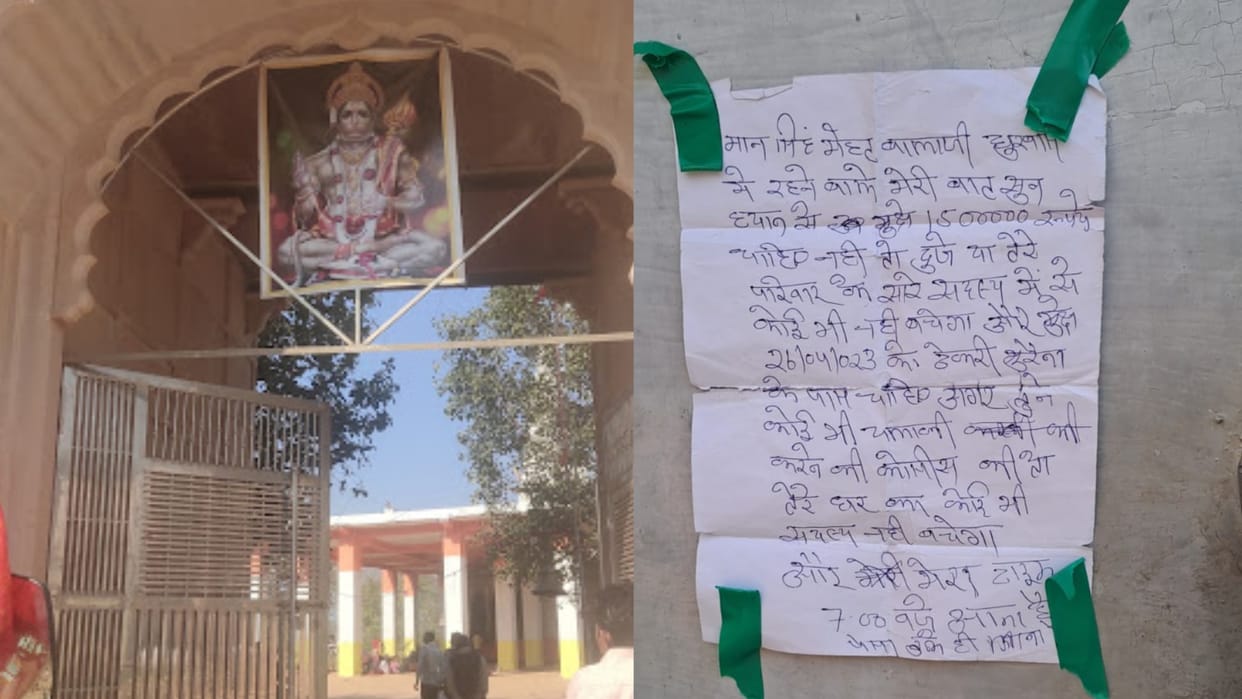 मान सिंह मेहट बालाजी हुस्वाप
मे रहने वाले मेरी बात सुन
ध्यान से मुझे 1500000 रूपेय
चाहिए नही तो तुजे या तेरे
परिवार के सारे सदस्य में से
कोई भी नही बचेगा और मुझे
26/04/023 को टेकरी हुरैना
के पास चाहिए अगर तुने
कोई भी चलाकी की
करेन की कोसीस की तो
तेरे घर का कोई भी
सदस्य नही बचेगा
और मेरा टाइम
7.00 बजे आना है
पैसा लेके ही आना